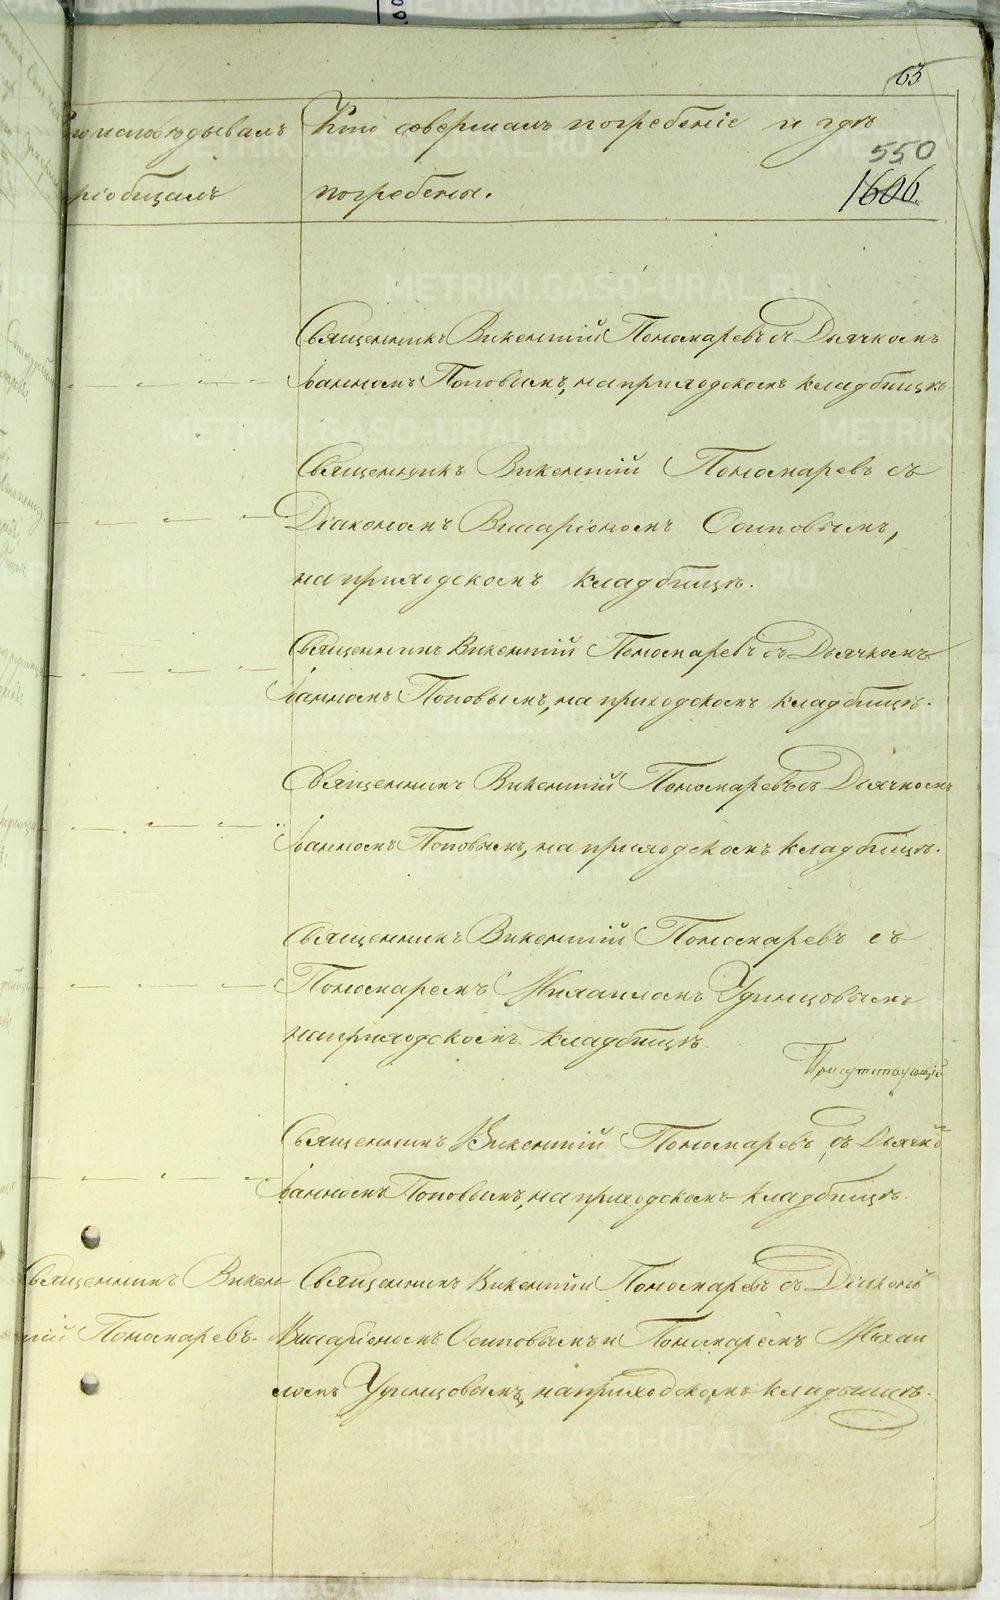 63
исповѣдывалъ
Кто совершалъ погребеніе и гдѣ
550
1606
пріобщалъ
погребены.
Священникъ Викентій Пономаревъ съ Дьячкомъ
Іоанномъ Поповымъ, на приходскомъ кладбищѣ
Священникъ Викентій Пономаревъ съ
Діакономъ Иларіономъ Осиповымъ,
на приходскомъ кладбищѣ.
Священникъ Викентій Пономаревъ съ Дьячкомъ
Іоанномъ Поповымъ, на приходскомъ кладбищѣ.
Священникъ Викентій Пономаревъ съ Дьячкомъ
Іоанномъ Поповымъ, на приходскомъ кладбищѣ.
Священникъ Викентій Пономаревъ съ
Пономаремъ Михаиломъ Удинцовымъ
на приходскомъ кладбищѣ.
Присутствующій
Священникъ Викентій Пономаревъ, съ Дьячко
Іоанномъ Поповымъ, на приходскомъ кладбищѣ.
Священникъ Викен-
тій Пономаревъ.
Священникъ Викентій Пономаревъ съ Діаконо
Иларіономъ Осиповымъ и Пономаремъ Михаи
ломъ Удинцовымъ, на приходскомъ кладбищѣ.
METRIKI.GASO-URAL.RU